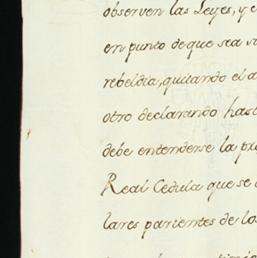 observen las Leyes, y e
en punto de que sea s
rebeldia, quitando el a
otro declarando hast
debe entenderse la pr
Real Cedula que se
lares parientes de lo